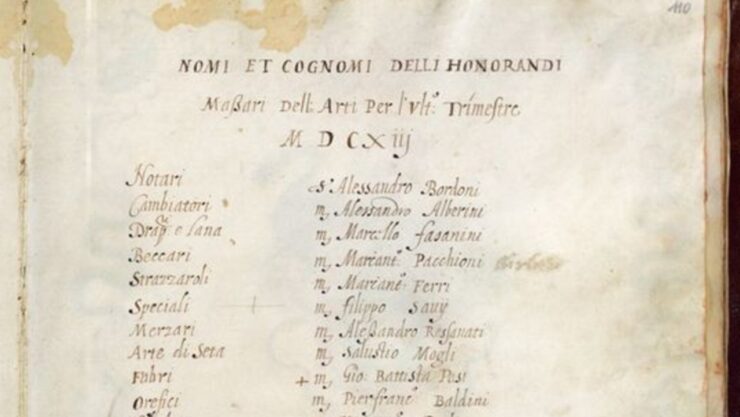 110
NOMI ET COGNOMI DELLI HONORANDI
Maßari Dell: Arti Per l'Vlt:º Trimestre
M D C X iij
Notari s.r Alessandro Bordoni
Cambiatori m, Alessandro Alberini
Drap: e Lana m, Marcello Fasanini
Beccari m, Marcant: Pacchioni
Strazzaroli m, Marcant: Ferri
Speciali m, Filippo Savÿ
Merzari m, Aleßandro Reſſanati
Arte di Seta m, Salustio Mogli
Fabri + m, Gio: Battista Posi
Orefici m, Pierfranc: Baldini